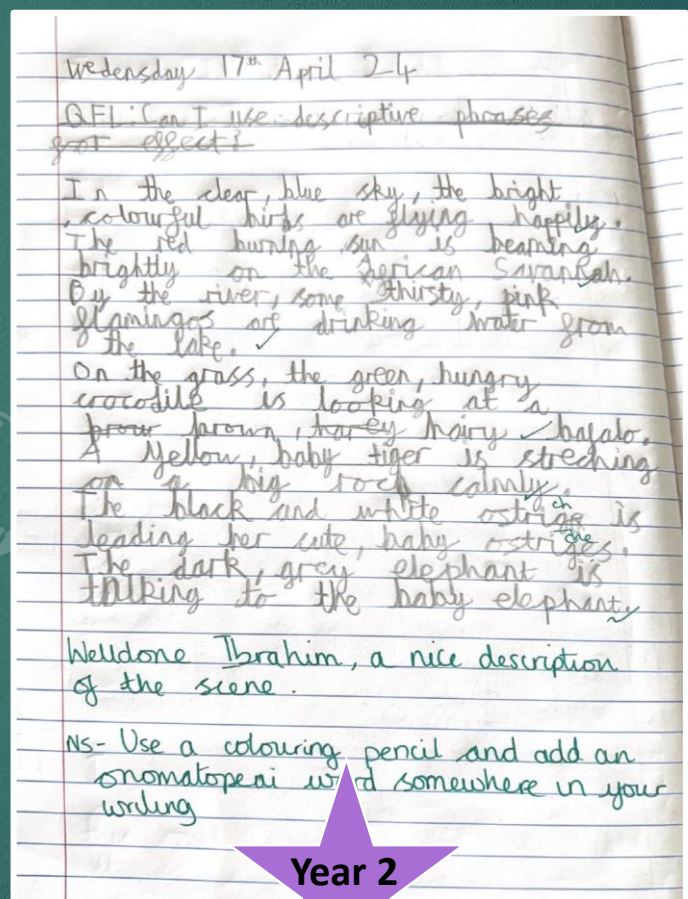 Wedensday 17th April 24
QFL: Can I use descriptive phrases
for effect?
In the clear, blue sky, the bright
, colourful birds are flying happily.
The red burning sun is beaming
brightly on the African Savannah.
By the river, some thirsty, pink
flamingos are drinking water from
the lake. ✓
On the grass, the green, hungry
crocodile is looking at a
brow brown, harey hairy bafalo.
A yellow, baby tiger is streching
on a big rock calmly.
ch
The black and white ostrige is
che
leading her cute, baby ostriges.
The dark, grey elephant is
talking to the baby elephant.
Welldone Ibrahim, a nice description
of the scene.
NS- Use a colouring pencil and add an
onomatopeai word somewhere in your
writing
Year 2